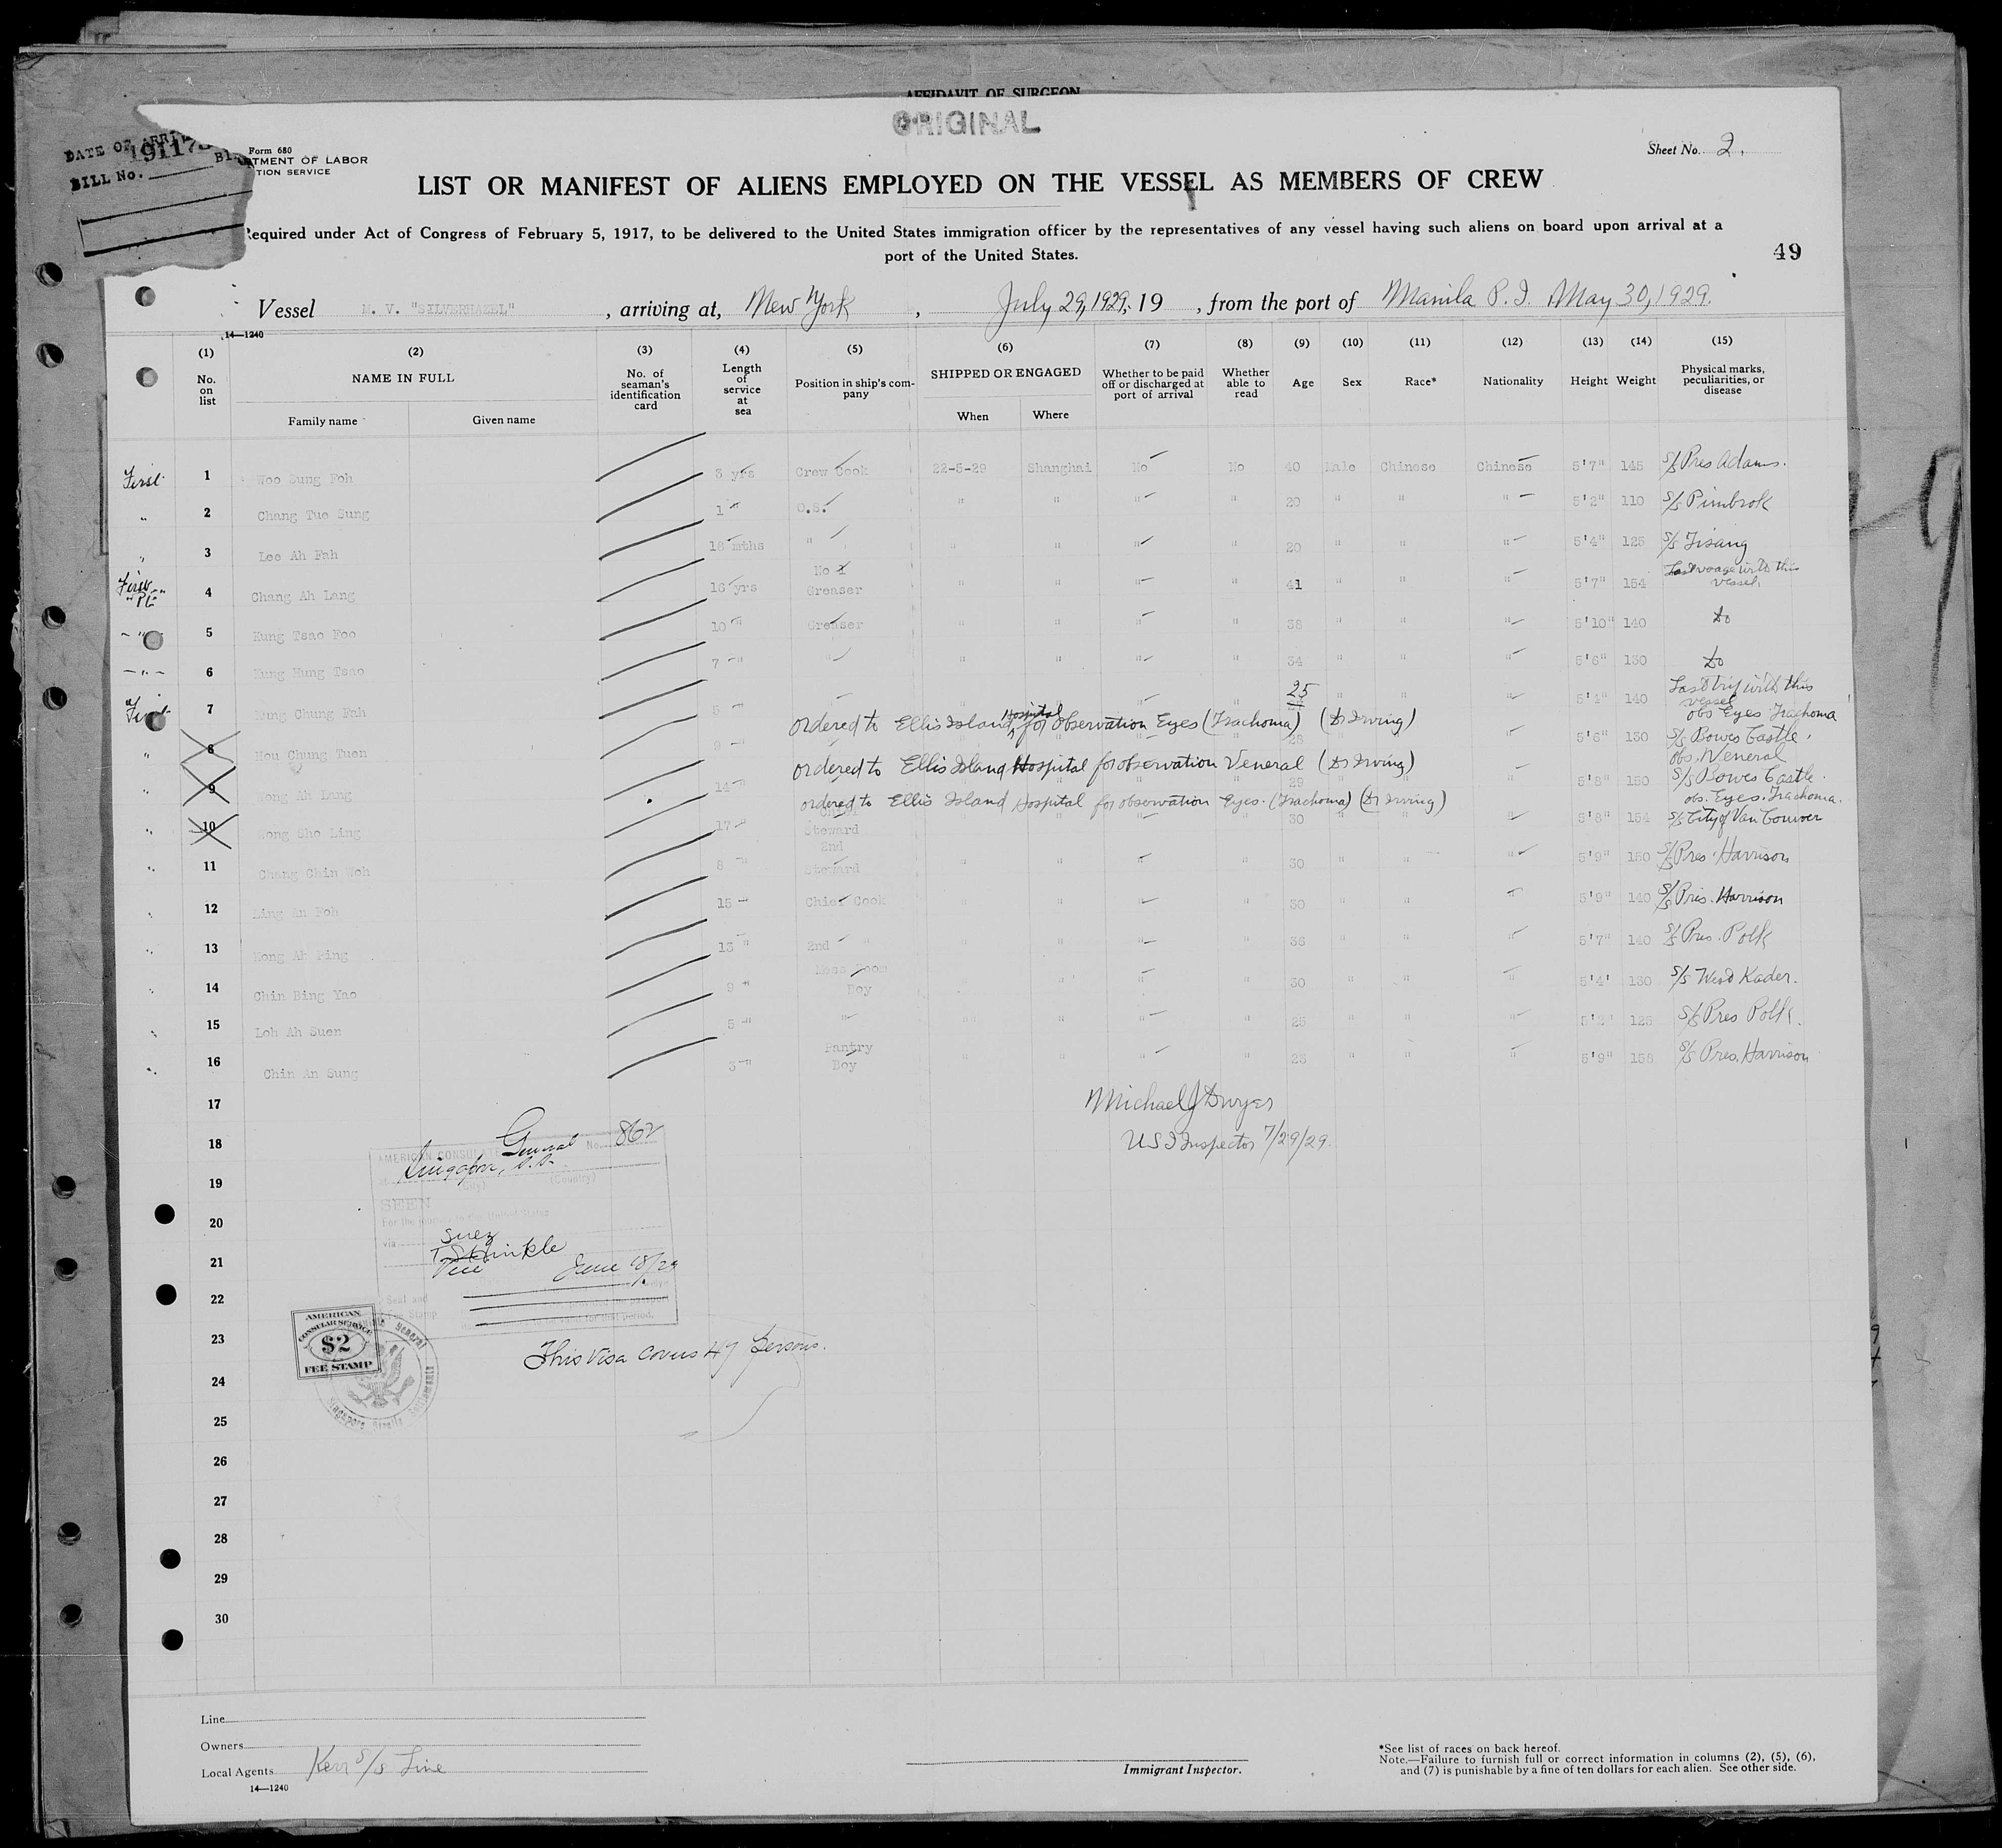 AFFIDAVIT OF SURGEON
ORIGINAL
DATE OF ARRI
191175
BILL No.
Form 680
TMENT OF LABOR
TION SERVICE
Sheet No. 2.
LIST OR MANIFEST OF ALIENS EMPLOYED ON THE VESSEL AS MEMBERS OF CREW
Required under Act of Congress of February 5, 1917, to be delivered to the United States immigration officer by the representatives of any vessel having such aliens on board upon arrival at a
port of the United States.
49
Vessel M. V. "SILVERHAZEL", arriving at, New York, July 29, 1929, 19 , from the port of Manila P. I. May 30, 1929.
14—1240
(1) (2) (3) (4) (5) (6) (7) (8) (9) (10) (11) (12) (13) (14) (15)
No. on list
NAME IN FULL
Family name Given name
No. of seaman's identification card
Length of service at sea
Position in ship's company
SHIPPED OR ENGAGED
When Where
Whether to be paid off or discharged at port of arrival
Whether able to read
Age Sex Race* Nationality Height Weight
Physical marks, peculiarities, or disease
First 1 Woo Sung Foh 3 yrs Crew Cook 22-5-29 Shanghai No No 40 Male Chinese Chinese 5'7" 145 S/S Pres Adams.
" 2 Chang Tue Sung 1 " O.S. " " " " 20 " " " 5'2" 110 S/S Pimbrok
" 3 Lee Ah Fah 18 mths " " " " " 20 " " " 5'4" 125 S/S Tisang
4 Chang Ah Lang 16 yrs No 1 Greaser " " " " 41 " " " 5'7" 154 Last voage with this vessel.
" 5 Kung Tsao Foo 10 " Greaser " " " " 38 " " " 5'10" 140 do
" 6 Kung Hung Tsao 7 " " " " " " 34 " " " 5'6" 130 do
First 7 Kung Chung Fah 5 " 25 " " " 5'4" 140 Last trip with this vessel
ordered to Ellis Island Hospital for observation Eyes (Trachoma) (Dr Irving) obs Eyes Trachoma
" 8 Hou Chung Tuen 9 " 28 " 5'6" 130 S/S Bowes Castle.
ordered to Ellis Island Hospital for observation Veneral (Dr Irving) obs. Veneral
" 9 Wong Ah Lang 14 " 29 " 5'8" 150 S/S Bowes Castle.
ordered to Ellis Island Hospital for observation Eyes. (Trachoma) (Dr Irving) obs. Eyes. Trachoma.
" 10 Wong Sho Ling 17 " Chief Steward " " " " 30 " " " 5'8" 154 S/S City of Van Couver
" 11 Chang Chin Woh 8 " 2nd Steward " " " " 30 " " " 5'9" 150 S/S Pres. Harrison
" 12 Ling An Foh 15 " Chief Cook " " " " 30 " " " 5'9" 140 S/S Pres. Harrison
" 13 Kong Ah Ping 13 " 2nd " " " " " 36 " " " 5'7" 140 S/S Pres. Polk
" 14 Chin Bing Yao 9 " Mess Room Boy " " " " 30 " " " 5'4" 130 S/S West Kader.
" 15 Loh Ah Suen 5 " " " " " " 25 " " " 125 S/S Pres Polk.
" 16 Chin An Sung 3 " Pantry Boy " " " " 23 " " " 5'9" 158 S/S Pres. Harrison
17
Michael J Dwyer
18
US I Inspector 7/29/29.
AMERICAN CONSULATE General No. 862
Singapore, S.S.
(City) (Country)
19
SEEN
For the journey to the United States
20
via Suez
21
Vice June 18/29
22
Seal and
Fee Stamp
23
AMERICAN
CONSULAR SERVICE
$2
FEE STAMP
Singapore Straits Settlements
This visa covers 47 persons.
24
25
26
27
28
29
30
Line
Owners
Local Agents Kerr S/S Line
14—1240
Immigrant Inspector.
*See list of races on back hereof.
Note.—Failure to furnish full or correct information in columns (2), (5), (6),
and (7) is punishable by a fine of ten dollars for each alien. See other side.